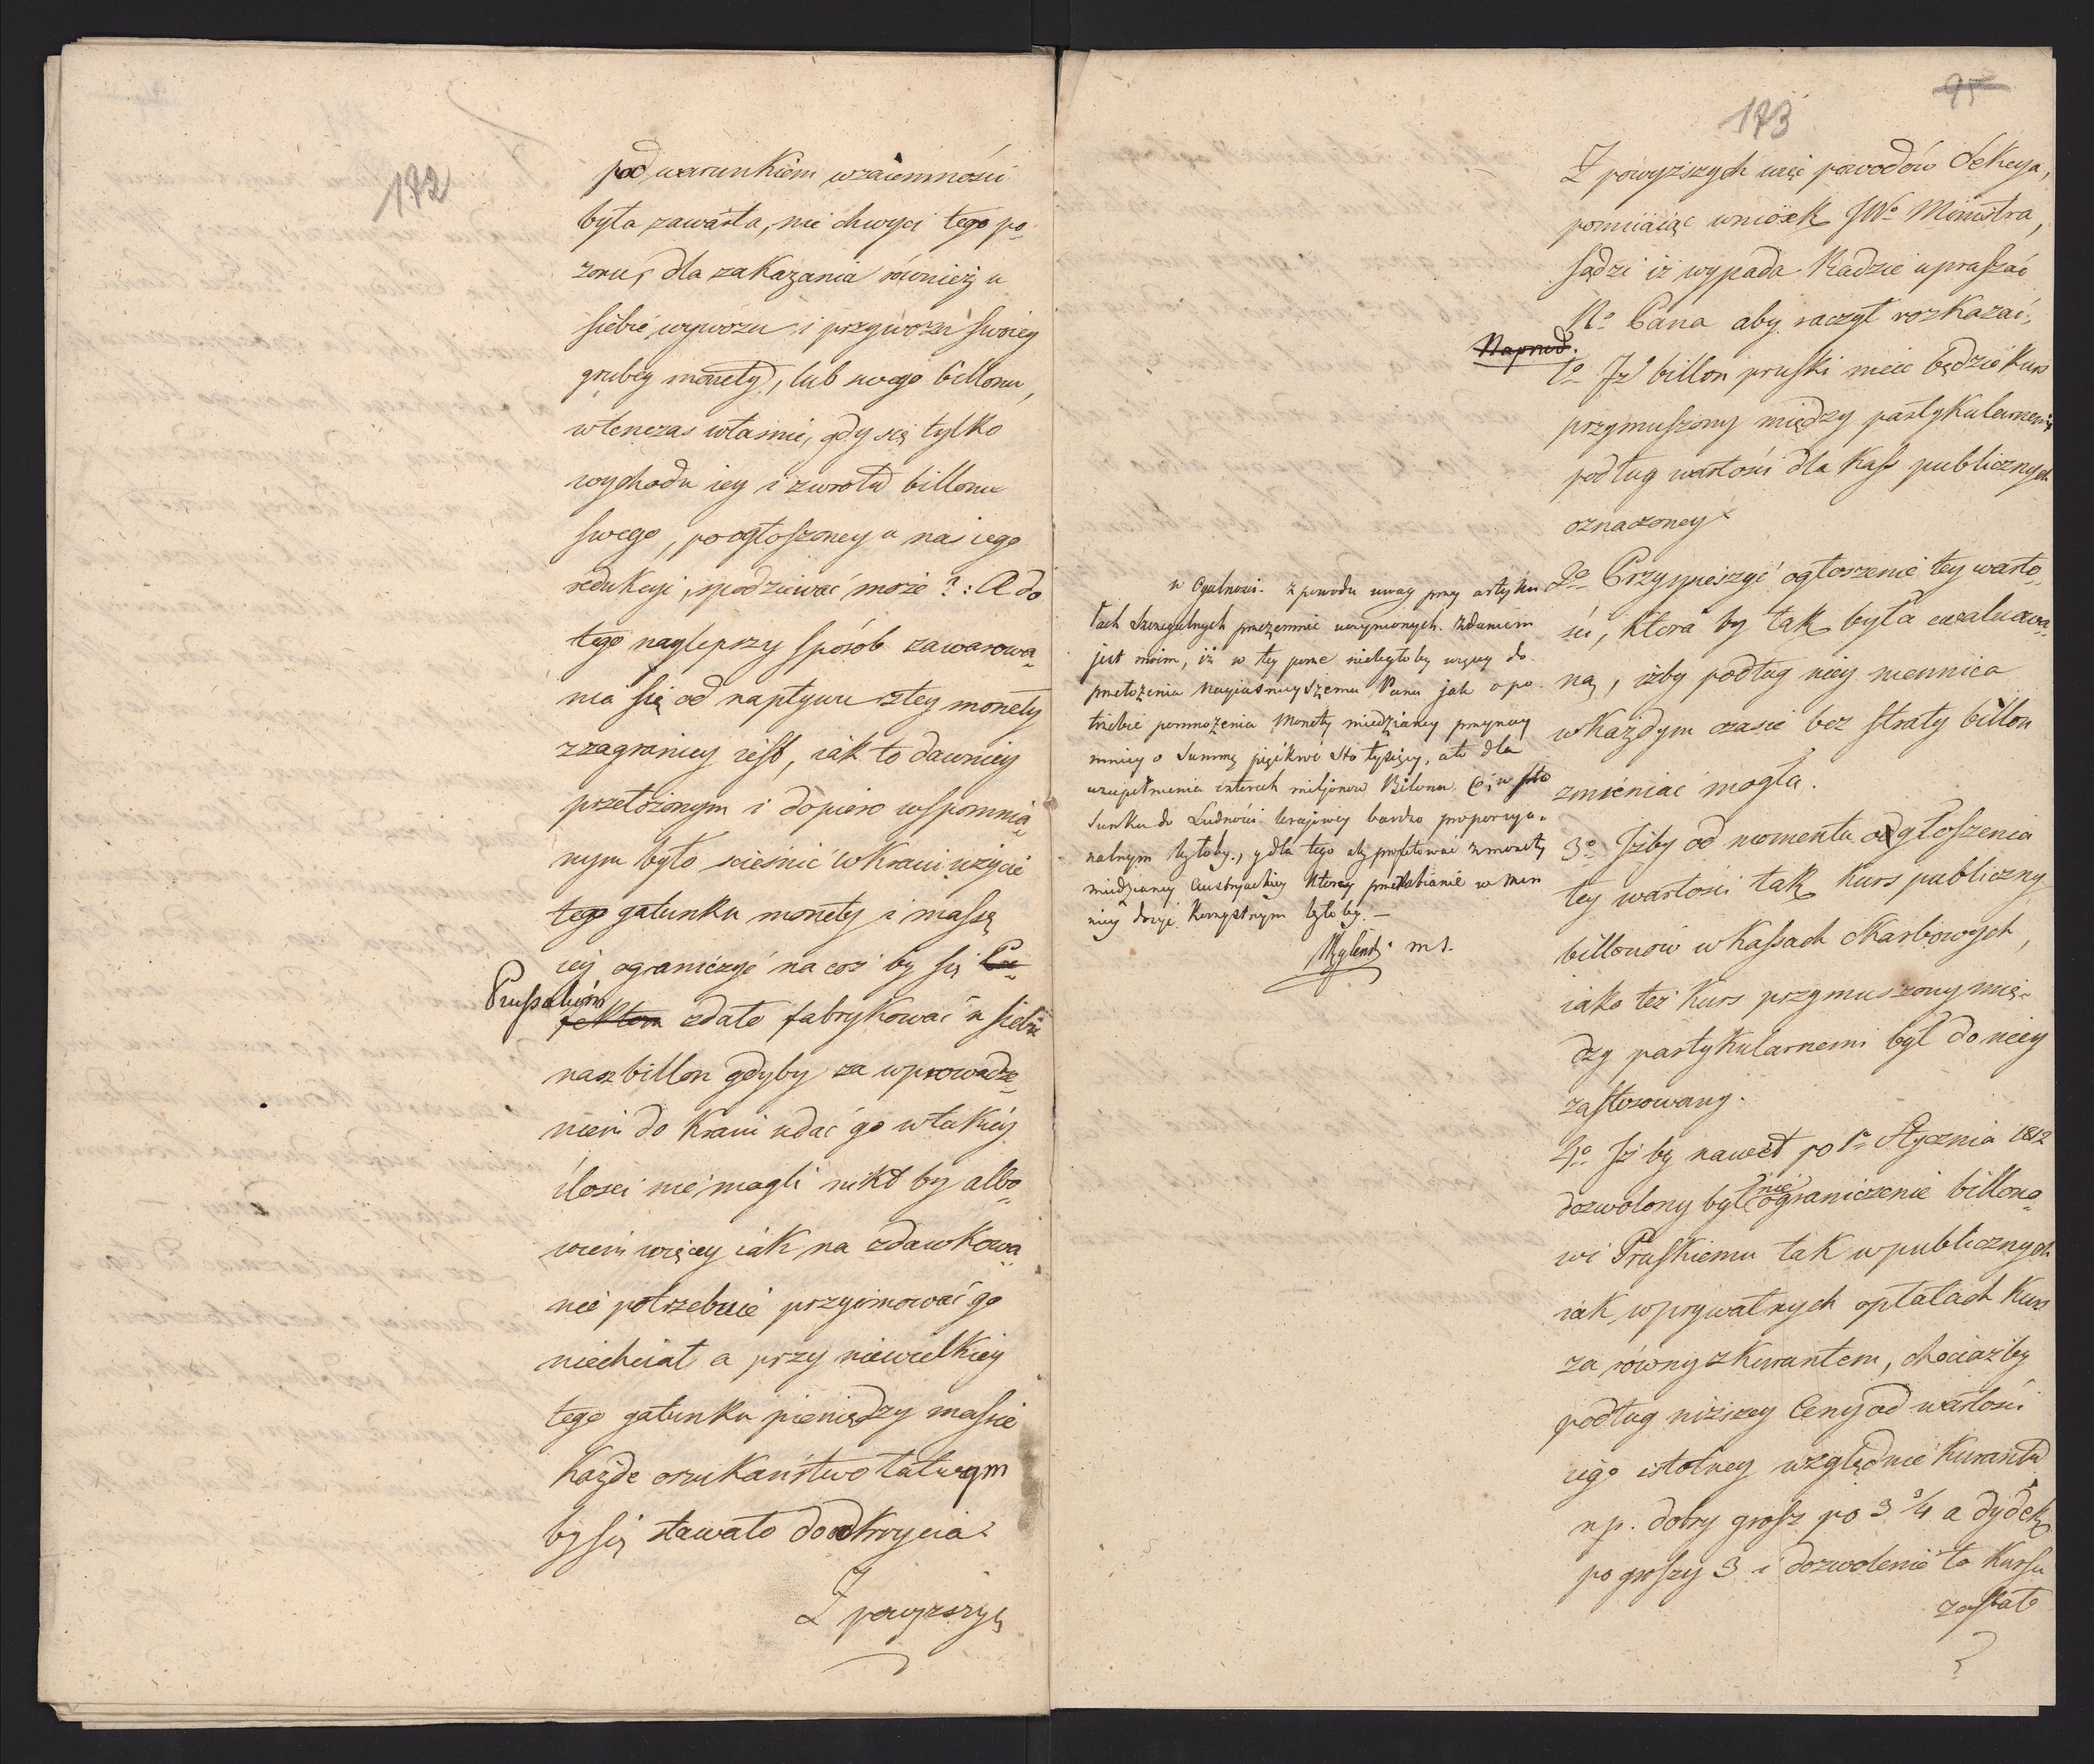 172
pod warunkiem wzaiemności
była zawarta, nie chwyci tego po„
zoru, dla zakazania również u
siebie wywozu i przywozu swoiey
grubey monety, lub swego billonu,
wtenczas właśnie, gdy się tylko
wychodu iey i zwrotu billonu
swego, po ogłoszoney u nas iego
redukcyi, spodziewać może?: A do
tego naylepszy sposób zawarowa„
nia się od napływu złey monety
zzagranicy iest, iak to dawniey
przełożonym i dopiero wspomnia„
nym było ścieśnić w kraiu użycie
tego gatunku monety i massę
iey ograniczyć na coż by się Pre„
Prussakóm
fektom zdało fabrykować u siebie
nasz billon gdyby za wprowadze„
niem do kraiu udać go w takiey
ilosci nie mogli nikt by albo„
wiem więcey iak na zdawkowa„
nie potrzebuie przyimować go
niechciał a przy niewielkiey
tego gatunku pieniędzy massie
każde oszukaństwo łatwym
by się stawało do odkrycia.
Z powyższyć
95
173
Z powyższych więc powodów Sekcya,
pomiiaiąc wniosek JWo Ministra,
sądzi iż wypada Radzie upraszać
No Pana aby raczył rozkazać,
Naprzód.
1o Iż billon pruski mieć będzie kurs
przymuszony między partykularnemi
podług wartości dla kass publicznych
oznaczoney
2o Przyspieszyć ogłoszenie tey warto„
ści, która by tak była ewaluowa„
na, iżby podług niey mennica
w każdym czasie bez straty billon
zmieniać mogła.
3o Iżby od momentu ogłoszenia
tey wartości tak kurs publiczny
billonów w kassach skarbowych,
iako też kurs przymuszony mię„
dzy partykularnemi był do niey
zastosowany.
4o Iż by nawet po 1o Stycznia 1812
dozwolony był nie ograniczenie billono„
wi Pruskiemu tak w publicznych
iak w prywatnych opłatach kurs
za równy z kurantem, chociażby
podług niższey Ceny od wartości
iego istotney względnie kurantu
np. dobry grosz po 3 3/4 a dydek
po groszy 3 i dozwolenie to kursu
zostało
w Ogulności. z powodu uwag przy artyku
łach Szczegulnych przezemnie uczynionych. zdaniem
jest moim, iż w tey porze nieległoby więcey do
przełożenia Nayiaśnieyszemu Panu jak o po
trzebie pomnożenia Monety miedzianey przynay
mniey o Summę pięćkroć Sto tysięcy, ale dla
uzupełnienia czterech miljonow Bilonu, co w sto
sunku do Ludności kraiowey bardzo proporcyo„
nalnym byłoby, y dla tego aby profitować z monety
miedzianey Austryackiey Którey przerabianie w Men
nicy dosyć korzystnym byłoby. –